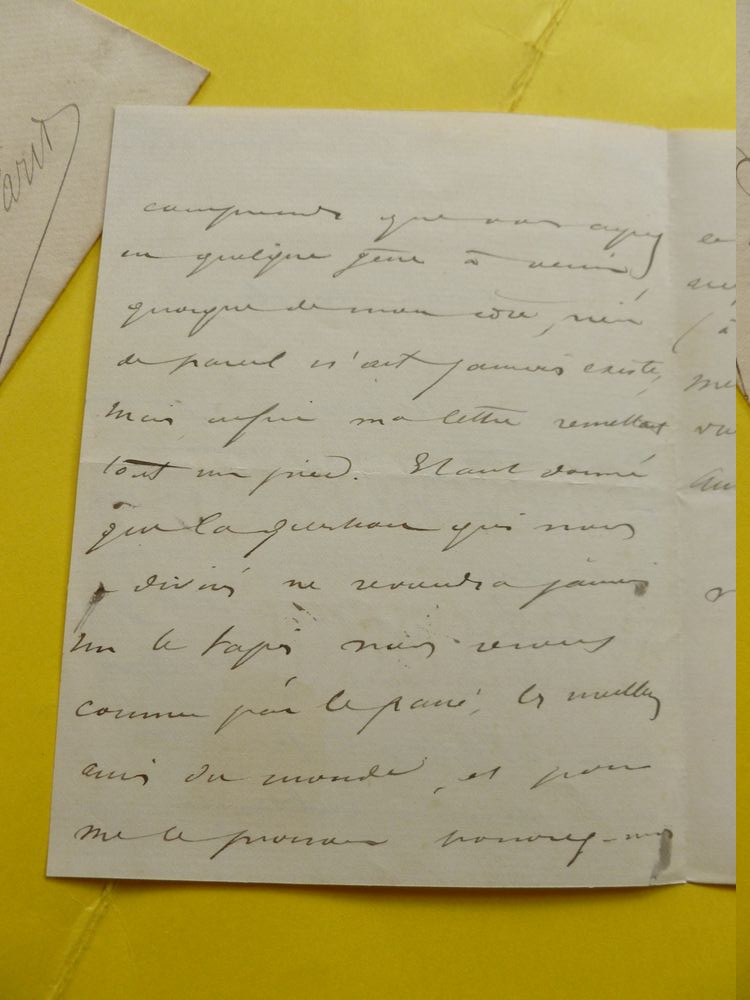 Paris
comprends que vous ayez
eu quelque gêne à venir,
quoique de mon côté, rien
de pareil n'ait jamais existé,
Mais enfin ma lettre remettait
tout sur pied. Etant donné
que la question qui nous
a divisés ne reviendra jamais
sur le tapis nous serons
comme par le passé, les meilleurs
amis du monde, et pour
me le prouver